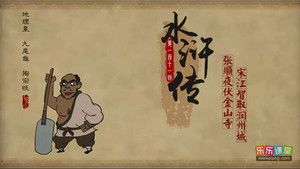 地理星 九尾龟 陶宗旺
水浒传
第一百十一回
张顺夜伏金山寺
宋江智取润州城
乐乐课堂